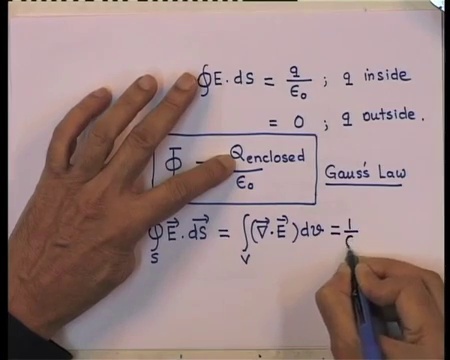 ∮E.ds = q/ε₀ ; q inside
= 0 ; q outside.
Φ = Qenclosed/ε₀ Gauss's Law
∮S E⃗.dS⃗ = ∫V (∇⃗.E⃗)dv = 1/